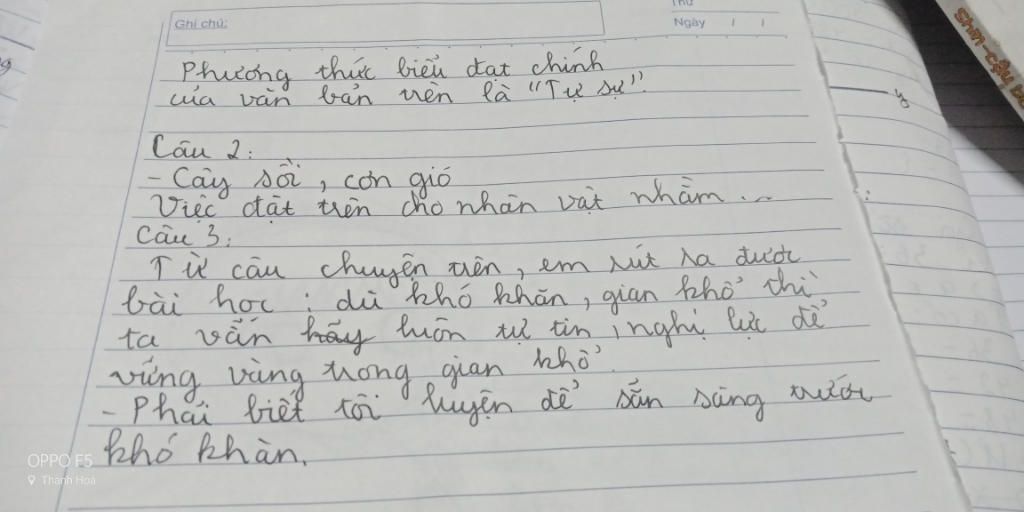 Ghi chú:
Thứ
Ngày / /
Phương thức biểu đạt chính
của văn bản trên là "Tự sự".
y
Câu 2:
- Cây sồi, cơn gió
Việc đặt trên cho nhân vật nhằm...
Câu 3:
Từ câu chuyện trên, em rút ra được
bài học: dù khó khăn, gian khổ thì
ta vẫn hãy luôn tự tin, nghị lực để
vững vàng trong gian khổ.
- Phải biết tôi luyện để sẵn sàng trước
khó khăn.
OPPO F5
Thanh Hoá